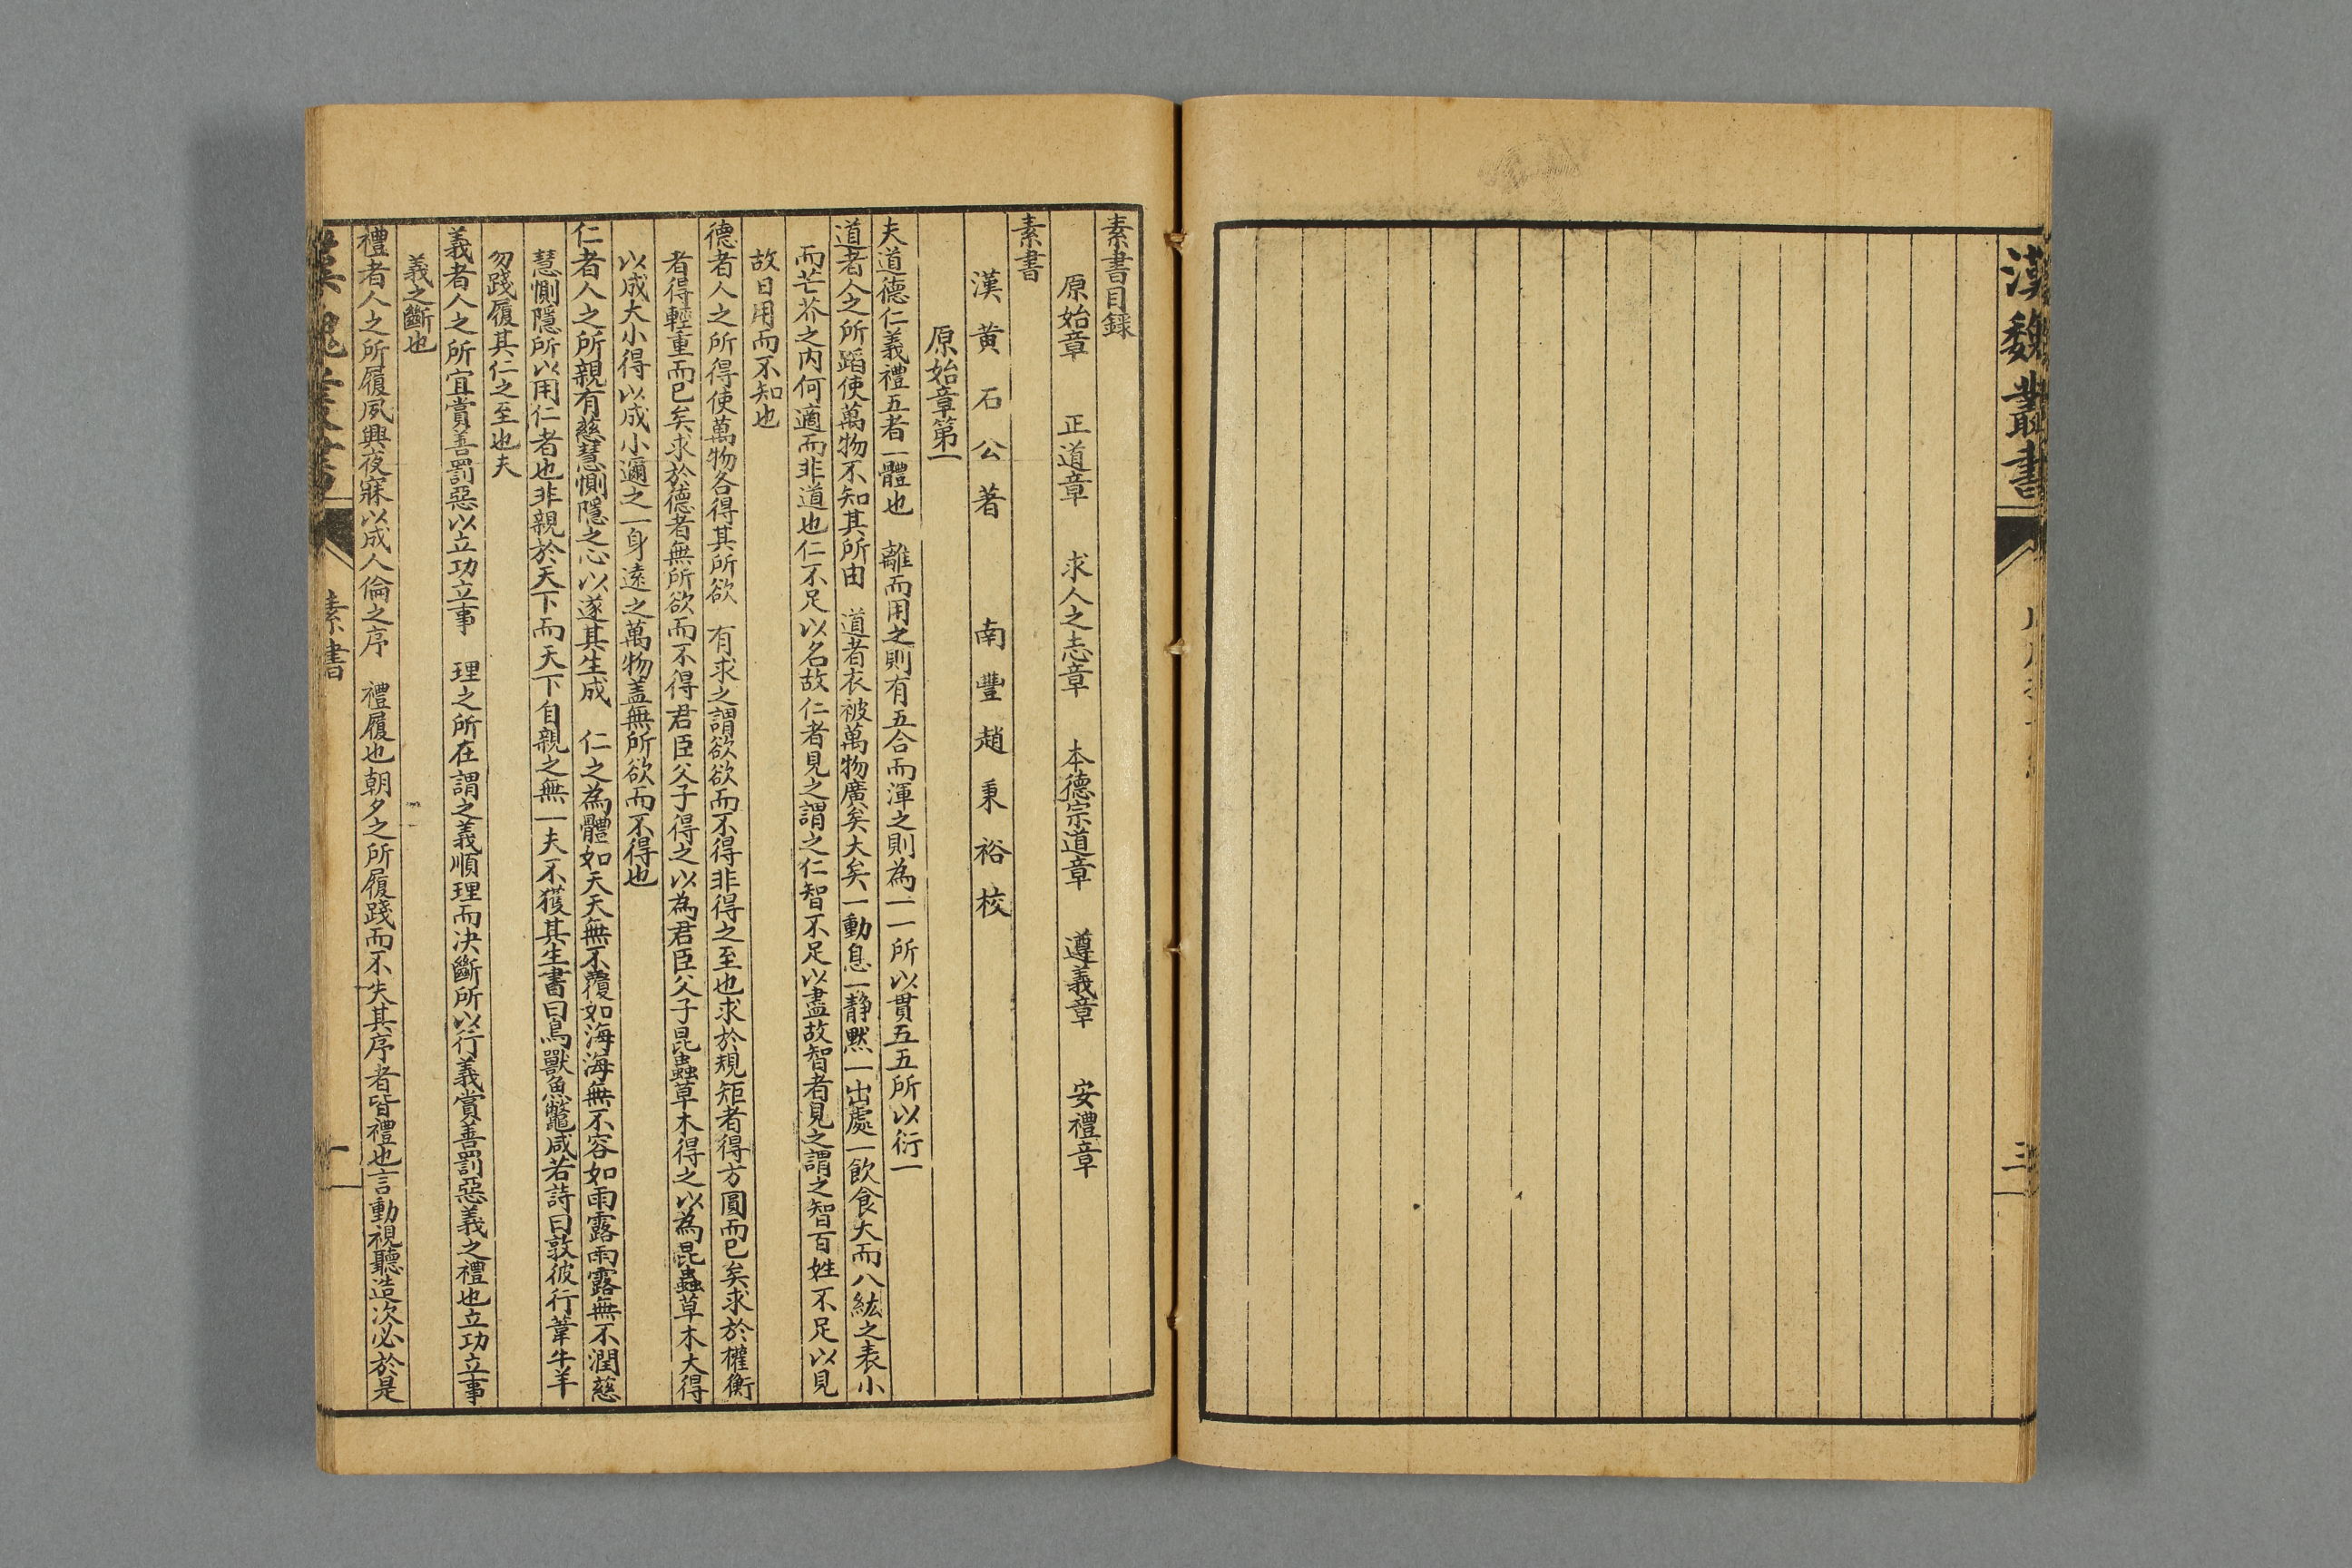 漢魏叢書
三
素書目録
原始章 正道章 求人之志章 本德宗道章 遵義章 安禮章
素書
漢黄石公著 南豐趙秉裕校
原始章第一
夫道德仁義禮五者一體也 離而用之則有五合而渾之則為一一所以貫五五所以衍一
道者人之所蹈使萬物不知其所由 道者衣被萬物廣矣大矣一動息一静黙一出處一飲食大而八紘之表小
而芒芥之内何適而非道也仁不足以名故仁者見之謂之仁智不足以盡故智者見之謂之智百姓不足以見
故日用而不知也
德者人之所得使萬物各得其所欲 有求之謂欲欲而不得非得之至也求於規矩者得方圓而已矣求於權衡
者得輕重而已矣求於德者無所欲而不得君臣父子得之以為君臣父子昆蟲草木得之以為昆蟲草木大得
以成大小得以成小邇之一身遠之萬物盖無所欲而不得也
仁者人之所親有慈慧惻隱之心以遂其生成 仁之為體如天天無不覆如海海無不容如雨露雨露無不潤慈
慧惻隱所以用仁者也非親於天下而天下自親之無一夫不獲其生書曰鳥獸魚鼈咸若詩曰敦彼行葦牛羊
勿踐履其仁之至也夫
義者人之所宜賞善罰惡以立功立事 理之所在謂之義順理而決斷所以行義賞善罰惡義之禮也立功立事
義之斷也
禮者人之所履夙興夜寐以成人倫之序 禮履也朝夕之所履踐而不失其序者皆禮也言動視聽造次必於是
漢魏叢書
素書
一